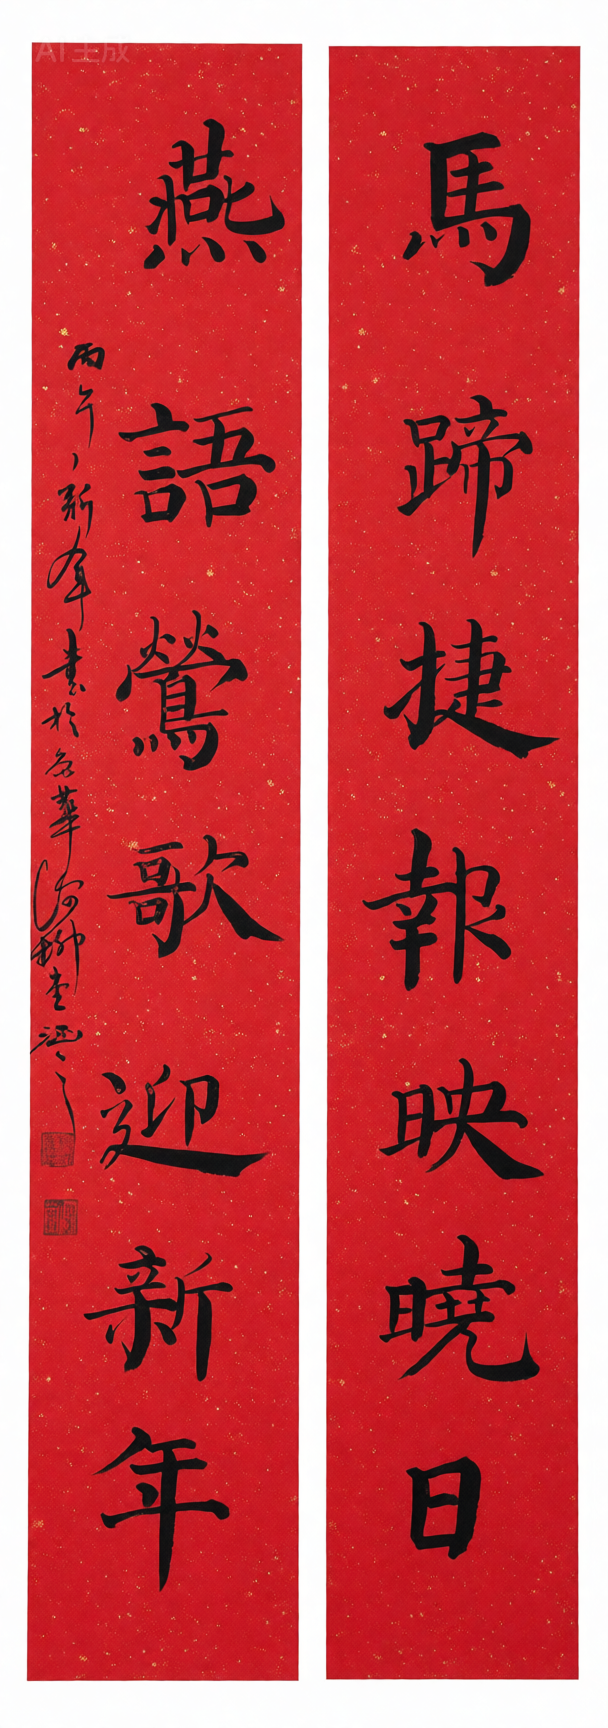 馬蹄捷報映曉日
燕語鶯歌迎新年
丙午新年書於京華
AI生成